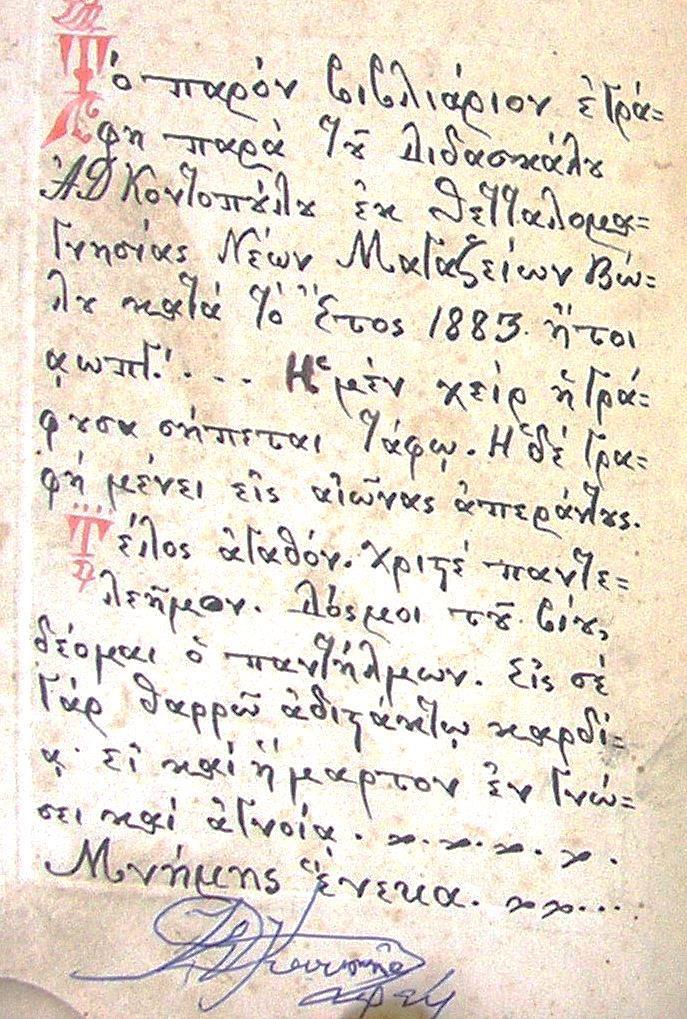 Τὸ παρόν βιβλιάριον ἐγρά=
φη παρὰ τοῦ διδασκάλου
ΑΔ Κοντοπούλου ἐκ Θετταλομα=
γνησίας Νέων Μαγαζείων Βώ=
λου κατά τὸ ἔτος 1883. ἤτοι
αωπγ.' . . . Ἡ μέν χείρ ἡ γρά=
φουσα σήπεται τάφῳ. Ἡ δέ γρα=
φή μένει εἰς αἰῶνας ἀπεράντους.
Τέλος ἀγαθόν. Χριστέ παντε=
λεῆμον. Δός μοι τοῦ βίου,
δέομαι ὁ παντλήμων. Εἰς σέ
γάρ θαρρῶ ἀδιστάκτῳ καρδί=
ᾳ· εἰ καί ἥμαρτον ἐν γνώ=
σει καί ἀγνοίᾳ.
Μνήμης ἕνεκα.